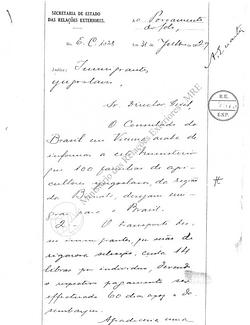 SECRETARIA DE ESTADO
DAS RELAÇÕES EXTERIORES.
Ao Povoamento
do Sólo,
Em 31 de Julho 29
Immigrantes
yugoslavos.
Sr. Director Geral,
O Consulado do
Brasil em Vienna acaba de
informar a este Ministerio
que 100 familias de agri-
cultores yugoslavos, da região
do Banat, desejam emi-
grar para o Brasil.
2. O transporte des-
ses immigrantes, por meio de
rigorosa selecção, custa 14
libras por individuo, devendo
o respectivo pagamento ser
effectuado 60 dias após o de-
sembarque.
Agradeceria uma
R.E.
EXP.
Arquivo do Ministério das Relações Exteriores - MRE